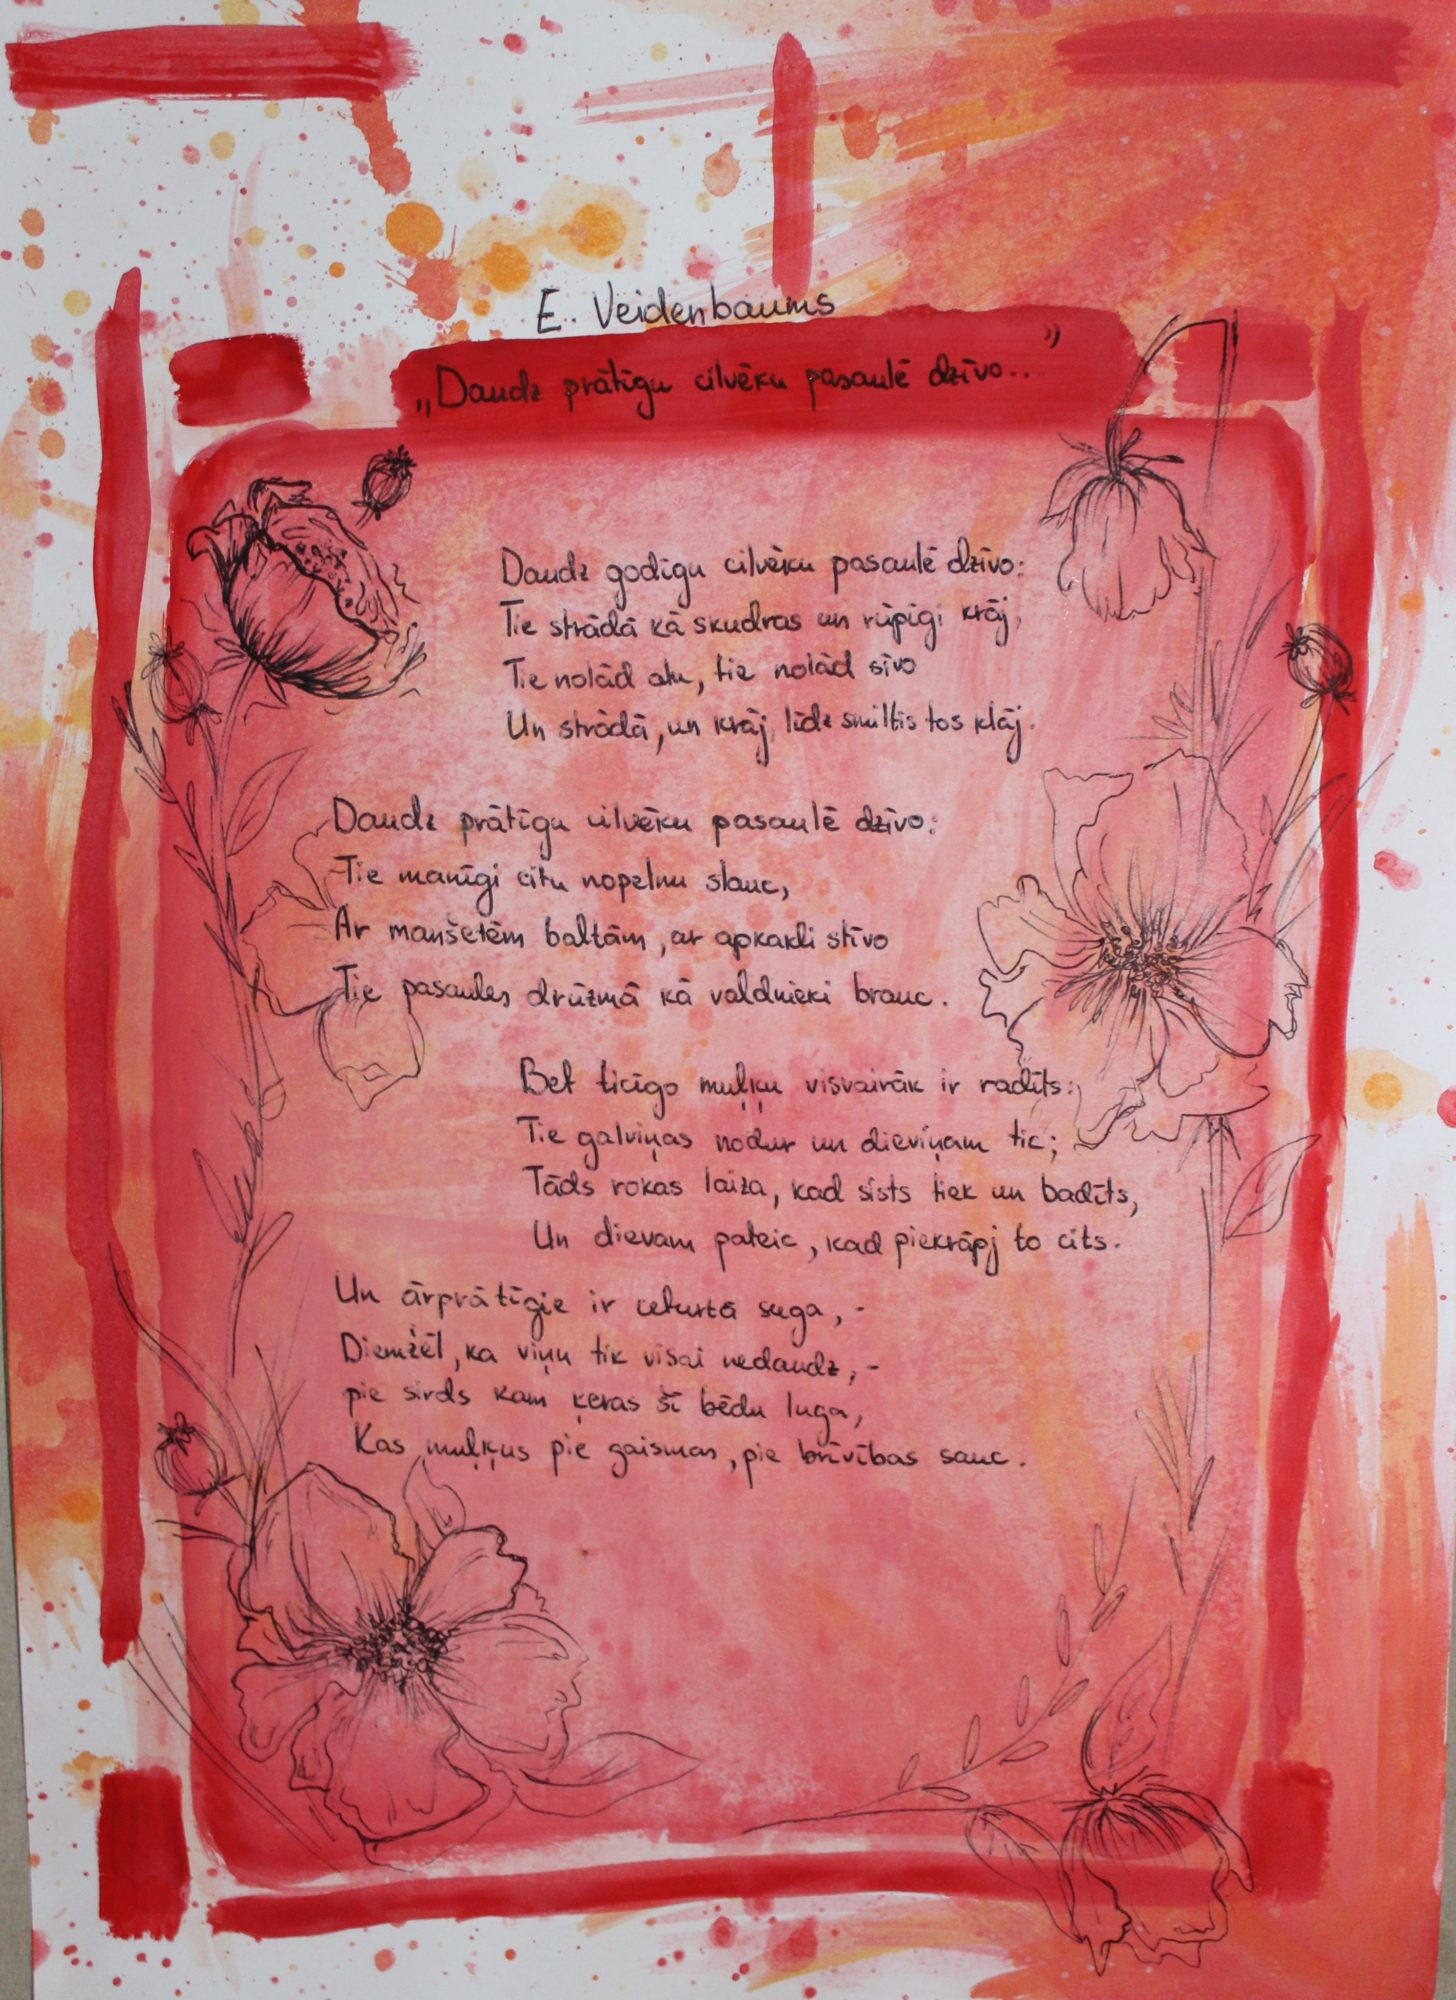 E. Veidenbaums
„Daudz prātīgu cilvēku pasaulē dzīvo.."
Daudz godīgu cilvēku pasaulē dzīvo:
Tie strādā kā skudras un rūpīgi krāj,
Tie nolād alu, tie nolād sīvo
Un strādā, un krāj, līdz smiltis tos klāj.
Daudz prātīgu cilvēku pasaulē dzīvo:
Tie manīgi citu nopelnu slauc,
Ar manšetēm baltām, ar apkakli stīvo
Tie pasaules drūzmā kā valdnieki brauc.
Bet ticīgo muļķu visvairāk ir radīts:
Tie galviņas nodur un dieviņam tic;
Tāds rokas laiza, kad sists tiek un badīts,
Un dievam pateic, kad piekrāpj to cits.
Un ārprātīgie ir ceturtā suga, -
Diemžēl, ka viņu tik visai nedaudz, -
pie sirds kam ķeras šī bēdu luga,
Kas muļķus pie gaismas, pie brīvības sauc.